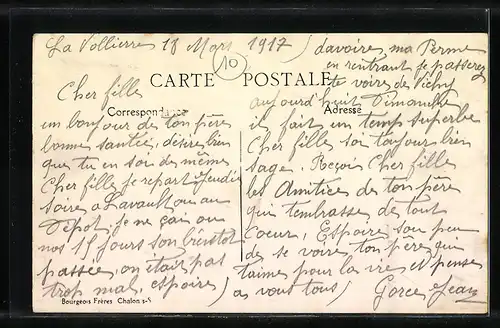 La Vollierre 18 Mars 1917
10
CARTE POSTALE
Correspondance
Adresse
Cher fille
un bonjour de ton père
bonne santée, désire bien
que tu en soi de même
Cher fille je repart Jeudi
soire a Lavault ou au
Dépot, je ne çais ou
nos 15 jours son bientot
passée, on était pas
trop mal, espoire
davoire, ma Perme
en rentrant je passerez
te voire de Vichy
aujourd'huit Dimanche
il fait un temp superbe
Cher fille soi toujour bien
sage. Reçoi Cher fille
les Amitiée de ton père
qui tembrasse de tout
Coeur, Espoire sou peu
de se voire ton père qui
taime pour la vie et pense
a vous tous Gorce Jean
Bourgeois Frères Chalon s-S